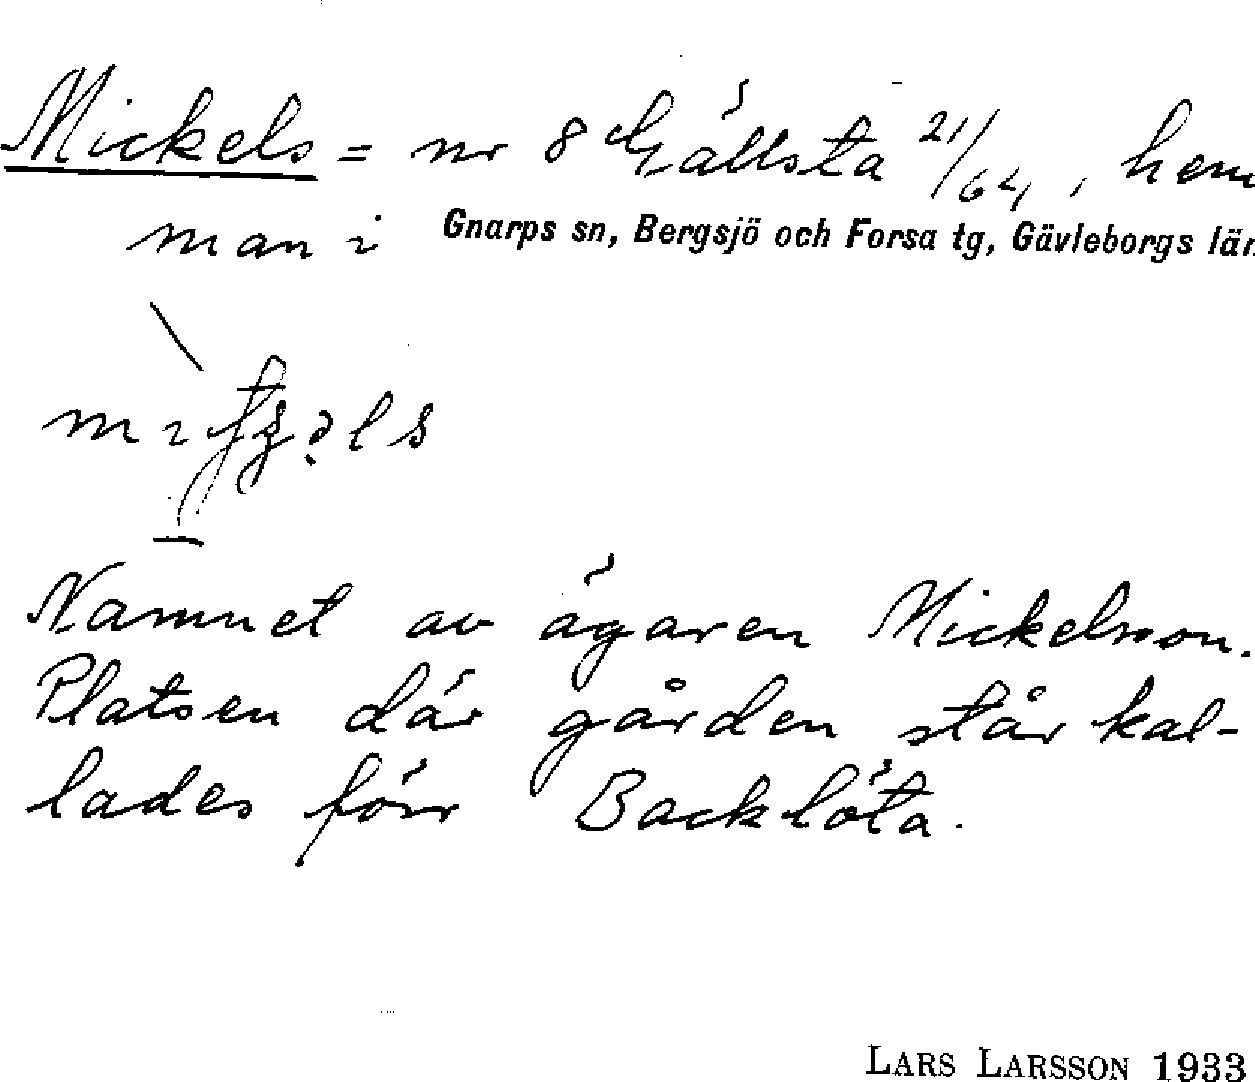 Mickels = nr 8 Gällsta 21/64, hem
man i Gnarps sn, Bergsjö och Forsa tg, Gävleborgs län
Namnet av ägaren Mickelsson.
Platsen där gården står kal-
lades förr Backlöta.
LARS LARSSON 1933